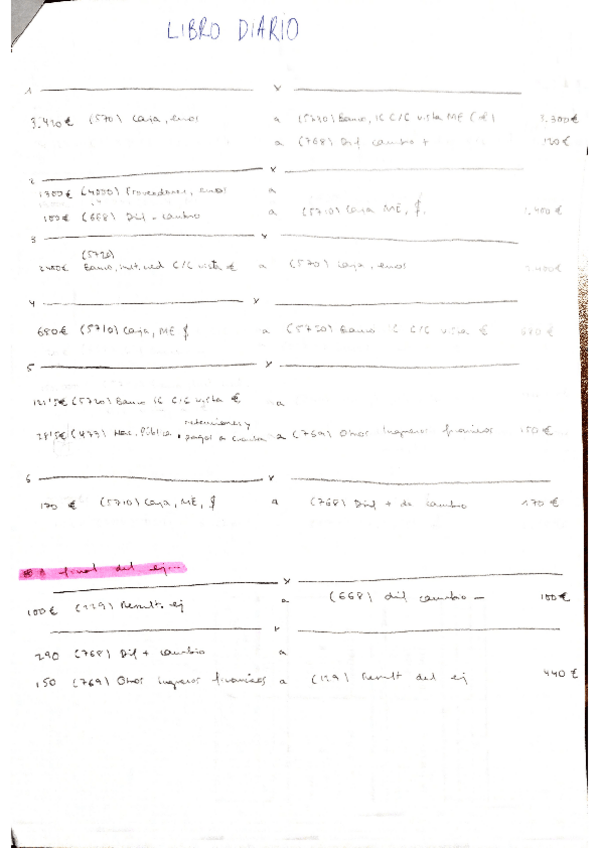 LIBRO DIARIO
1 x
3.420€ (570) Caja, euros a (5730) Banco, IC C/C vista ME (€) 3.300€
a (768) Dif cambio + 120€
2 x
1300€ (4000) Proveedores, euros a
100€ (668) Dif - cambio a (5710) Caja ME, $. 1.400€
3 x
(5720)
2400€ Banco, inst, ced C/C vista € a (570) Caja, euros 2.400€
4 x
680€ (5710) Caja, ME $ a (5720) Banco IC C/C vista € 680€
5 x
121'5€ (5720) Banco IC C/C vista € a
retenciones y
28'5€ (473) Hac. Pública, pagos a cuenta a (769) Otros ingresos financieros 150€
6 x
170€ (5710) Caja, ME, $ a (768) Dif + de cambio 170€
A final del ej...
x
100€ (129) Result. ej a (668) dif cambio - 100€
x
290 (768) Dif + cambio a
150 (769) Otros ingresos financieros a (129) Result del ej 440€